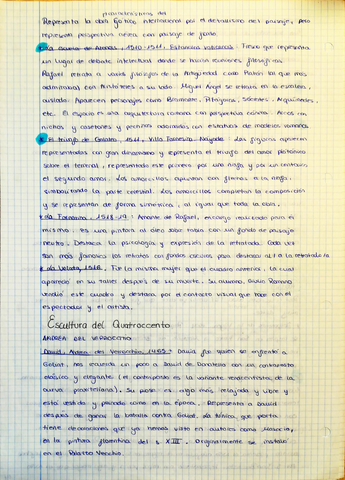 Representa la
Gótico internacional por el detallismo del paisaje, pero
representa perspectiva aérea con paisaje de fondo.
La Escuela de Atenas, 1510-1511, Estancias Vaticanas: Fresco que representa
un lugar de debate intelectual donde se hacían reuniones filosóficas.
Rafael retrata a varios filósofos de la Antigüedad como Platón (al que más
admiraba) con Aristóteles a su lado. Miguel Ángel se retrata en la escalera,
aislado. Aparecen personajes como Bramante, Pitágoras, Sócrates, Arquímedes,
etc. El espacio es una arquitectura romana con perspectiva central. Arcos con
nichos y casetones y pechinas adornados con estatuas de
El triunfo de Galatea, 1511, Villa Farnesina: Las figuras aparecen
representadas con gran dinamismo y representa el triunfo del amor platónico
sobre el terrenal, representado este primero por una ninfa y por un centauro
el segundo amor. Los amorcillos apuntan con flechas a la ninfa,
simbolizando la parte celestial. Los amorcillos comparten la composición
y se representan de forma simétrica, al igual que toda la obra.
La Fornarina, 1518-19: Amante de Rafael, encargo realizado para él
mismo, es una pintura al óleo sobre tabla con un fondo de paisaje
neutro. Destaca la psicología y expresión de la retratada. Cada vez
son más famosos los retratos con fondos oscuros para destacar al/a la retratado/a
La Velata, 1516. Fue la misma mujer que el cuadro anterior, la cual
apareció en su taller después de su muerte. Su alumno, Giulio Romano
vendió este cuadro y destaca por el contacto visual que hace con el
espectador y el artista.
Escultura del Quattrocento
ANDREA DEL VERROCCHIO
David, Andrea del Verrocchio, 1465: David fue quien se enfrentó a
Goliat, nos recuerda un poco a David de Donatello con el contraposto
clásico y elegante (el contraposto es la variante renacentista de la
curva praxiteliana). Su pose es algo más relajada y libre y
está vestido y peinado como en la época. Representa a David
después de ganar la batalla contra Goliat. La túnica, que porta
tiene decoraciones que ya hemos visto en autores como Masaccio,
en la pintura florentina del s. XIII. Originalmente se instaló
en el Palazzo Vecchio.